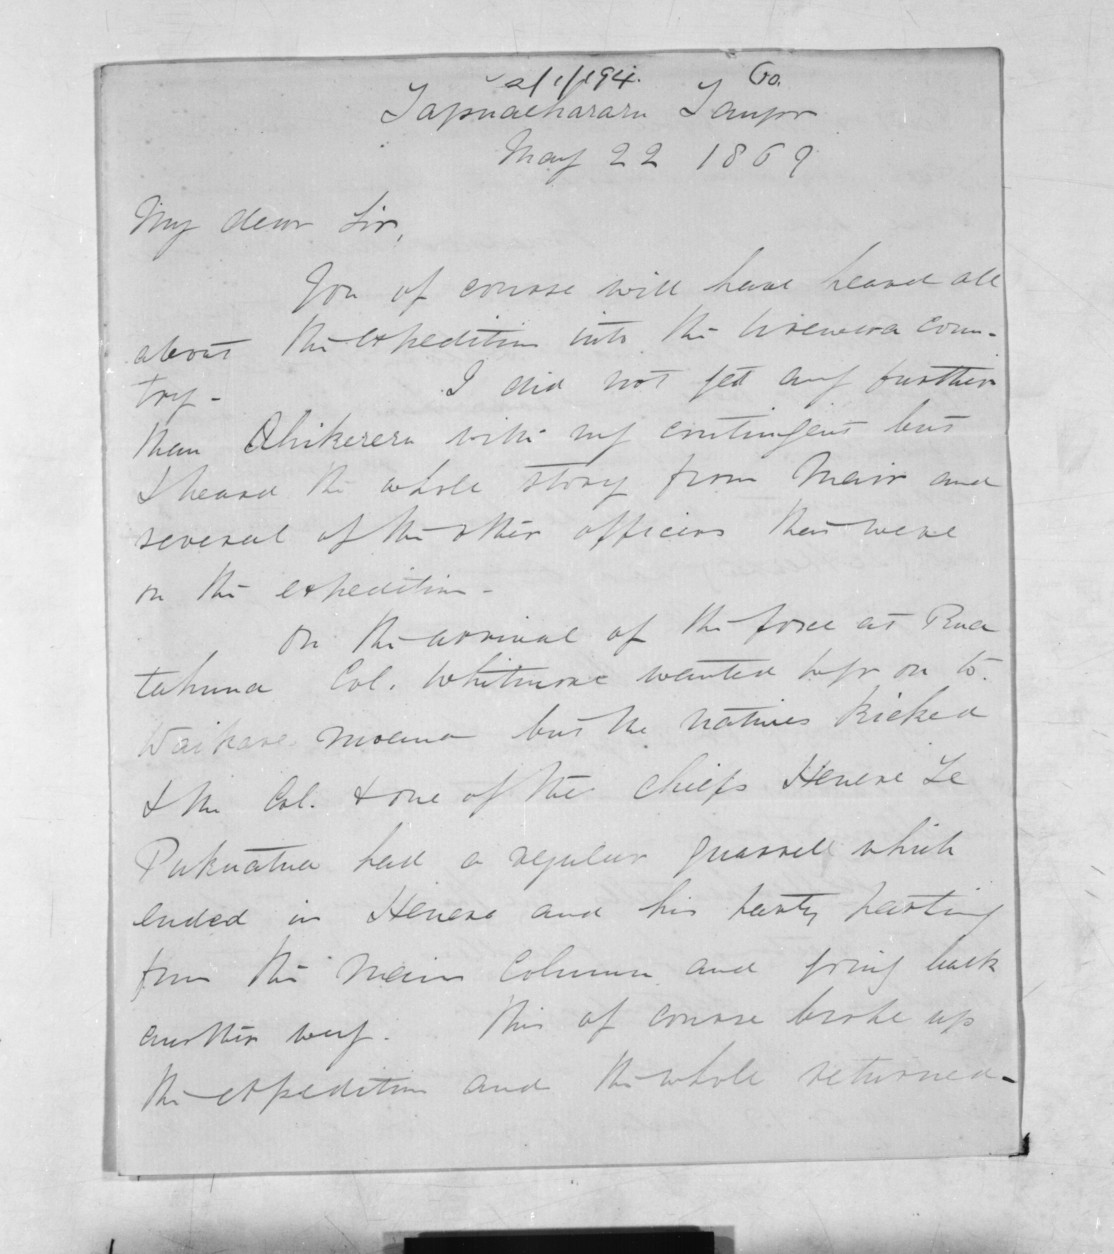 Tapuaeharuru Taupo
May 22 1869
My dear Sir,
You of course will have heard all
about the expedition into the Urewera coun-
try - I did not get any further
than Ahikereru with my contingent but
I heard the whole story from Mair and
several of the other officers that were
on the expedition -
On the arrival of the force at Rua
tahuna Col. Whitmore wanted to go on to
Waikare moana but the natives kicked
& the Col. & one of the chiefs Henere Te
Pukuatua had a regular quarrell which
ended in Henere and his party parting
from the main column and going back
another way. This of course broke up
the expedition and the whole returned -